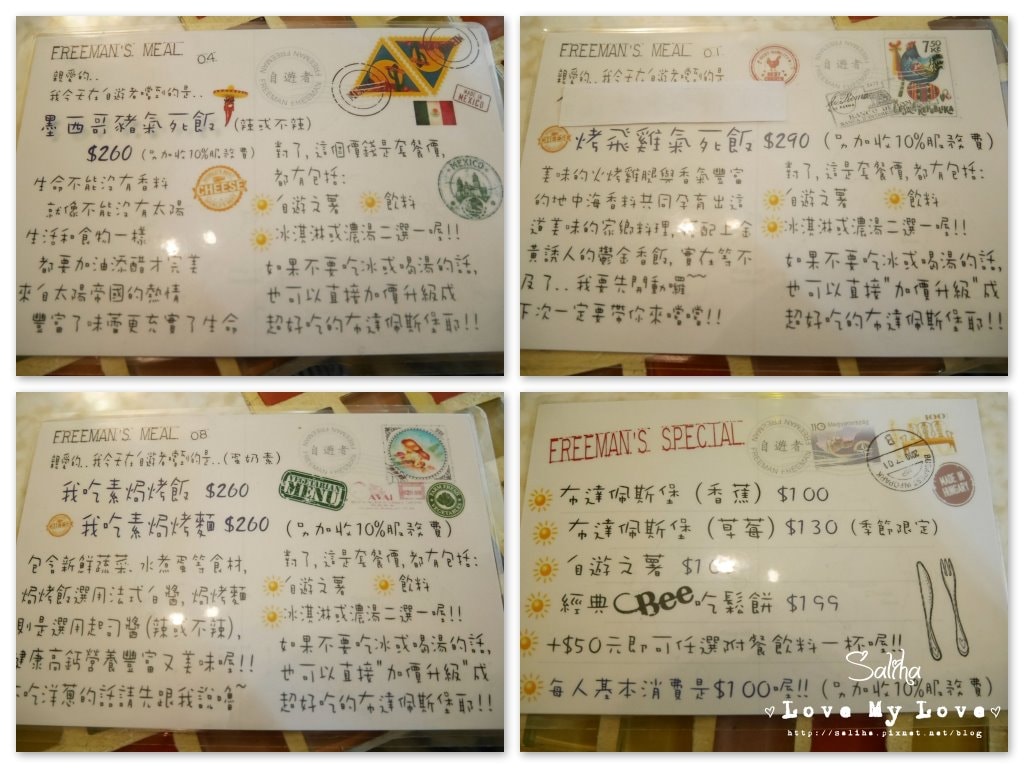 FREEMAN'S MEAL 04
親愛的..
我今天在自遊者嚐到的是..
自遊者
MADE IN MEXICO
墨西哥豬氣死飯 (辣或不辣)
$260 (另加收10%服務費)
生命不能沒有香料
就像不能沒有太陽
生活和食物一樣
都要加油添醋才完美
來自太陽帝國的熱情
豐富了味蕾更充實了生命
CHEESE
MEXICO
對了,這個價錢是套餐價,
都有包括:
自遊之薯 飲料
冰淇淋或濃湯二選一喔!!
如果不要吃冰或喝湯的話,
也可以直接加價升級成
超好吃的布達佩斯堡耶!!
FREEMAN'S MEAL 01
親愛的..我今天在自遊者嚐到的是
自遊者
7,50 Kč
烤飛雞氣死飯 $290 (另加收10%服務費)
美味的火烤雞腿與香氣豐富
的地中海香料共同孕育出這
道美味的家鄉料理,搭配上金
黃誘人的鬱金香飯,實在等不
及了..我要先開動囉~~
下次一定要帶你來嚐嚐!!
對了,這是套餐價,都有包括:
自遊之薯 飲料
冰淇淋或濃湯二選一喔!!
如果不要吃冰或喝湯的話,
也可以直接"加價升級"成
超好吃的布達佩斯堡耶!!
FREEMAN'S MEAL 08
親愛的..我今天在自遊者嚐到的是..(蛋奶素)
自遊者
我吃素焗烤飯 $260
VEGETARIAN MENU
我吃素焗烤麵 $260 (另加收10%服務費)
包含新鮮蔬菜.水煮蛋等食材,
焗烤飯選用法式白醬,焗烤麵
則是選用起司醬(辣或不辣),
健康高鈣營養豐富又美味喔!!
吃洋蔥的話請先跟我說嚕~
對了,這是套餐價,都有包括:
自遊之薯 飲料
冰淇淋或濃湯二選一喔!!
如果不要吃冰或喝湯的話,
也可以直接"加價升級"成
超好吃的布達佩斯堡耶!!
FREEMAN'S SPECIAL
自遊者
100
布達佩斯堡 (香蕉) $100
布達佩斯堡 (草莓) $130 (季節限定)
自遊之薯
經典CBee吃鬆餅 $199
+$50元即可任選附餐飲料一杯喔!!
每人基本消費是$100喔!! (另加收10%服務費)
Saliha
Love My Love
http://saliha.pixnet.net/blog